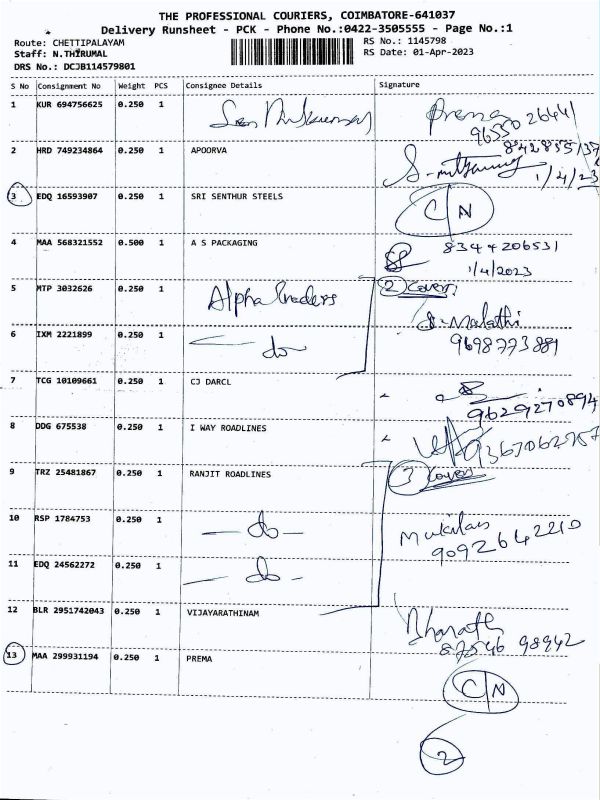 THE PROFESSIONAL COURIERS, COIMBATORE-641037
Delivery Runsheet - PCK - Phone No.:0422-3505555 - Page No.:1
Route: CHETTIPALAYAM
Staff: N.THIRUMAL
DRS No.: DCJB114579801
RS No.: 1145798
RS Date: 01-Apr-2023
S No Consignment No Weight PCS Consignee Details Signature
1 KUR 694756625 0.250 1 Prema
2 HRD 749234864 0.250 1 APOORVA
1/4/23
3 EDQ 16593907 0.250 1 SRI SENTHUR STEELS C/N
4 MAA 568321552 0.500 1 A S PACKAGING 8344206531
1/4/2023
5 MTP 3032626 0.250 1 Alpha Traders 2 Cover
S. Malathi
6 IXM 2221899 0.250 1 - do - 9698773881
7 TCG 10109661 0.250 1 CJ DARCL
9629270894
8 DDG 675538 0.250 1 I WAY ROADLINES 9367062757
9 TRZ 25481867 0.250 1 RANJIT ROADLINES 3 Cover
10 RSP 1784753 0.250 1 - do - Mukilan
9092642210
11 EDQ 24562272 0.250 1 - do -
12 BLR 2951742043 0.250 1 VIJAYARATHINAM Bharath
87546 98942
13 MAA 299931194 0.250 1 PREMA C/N
2